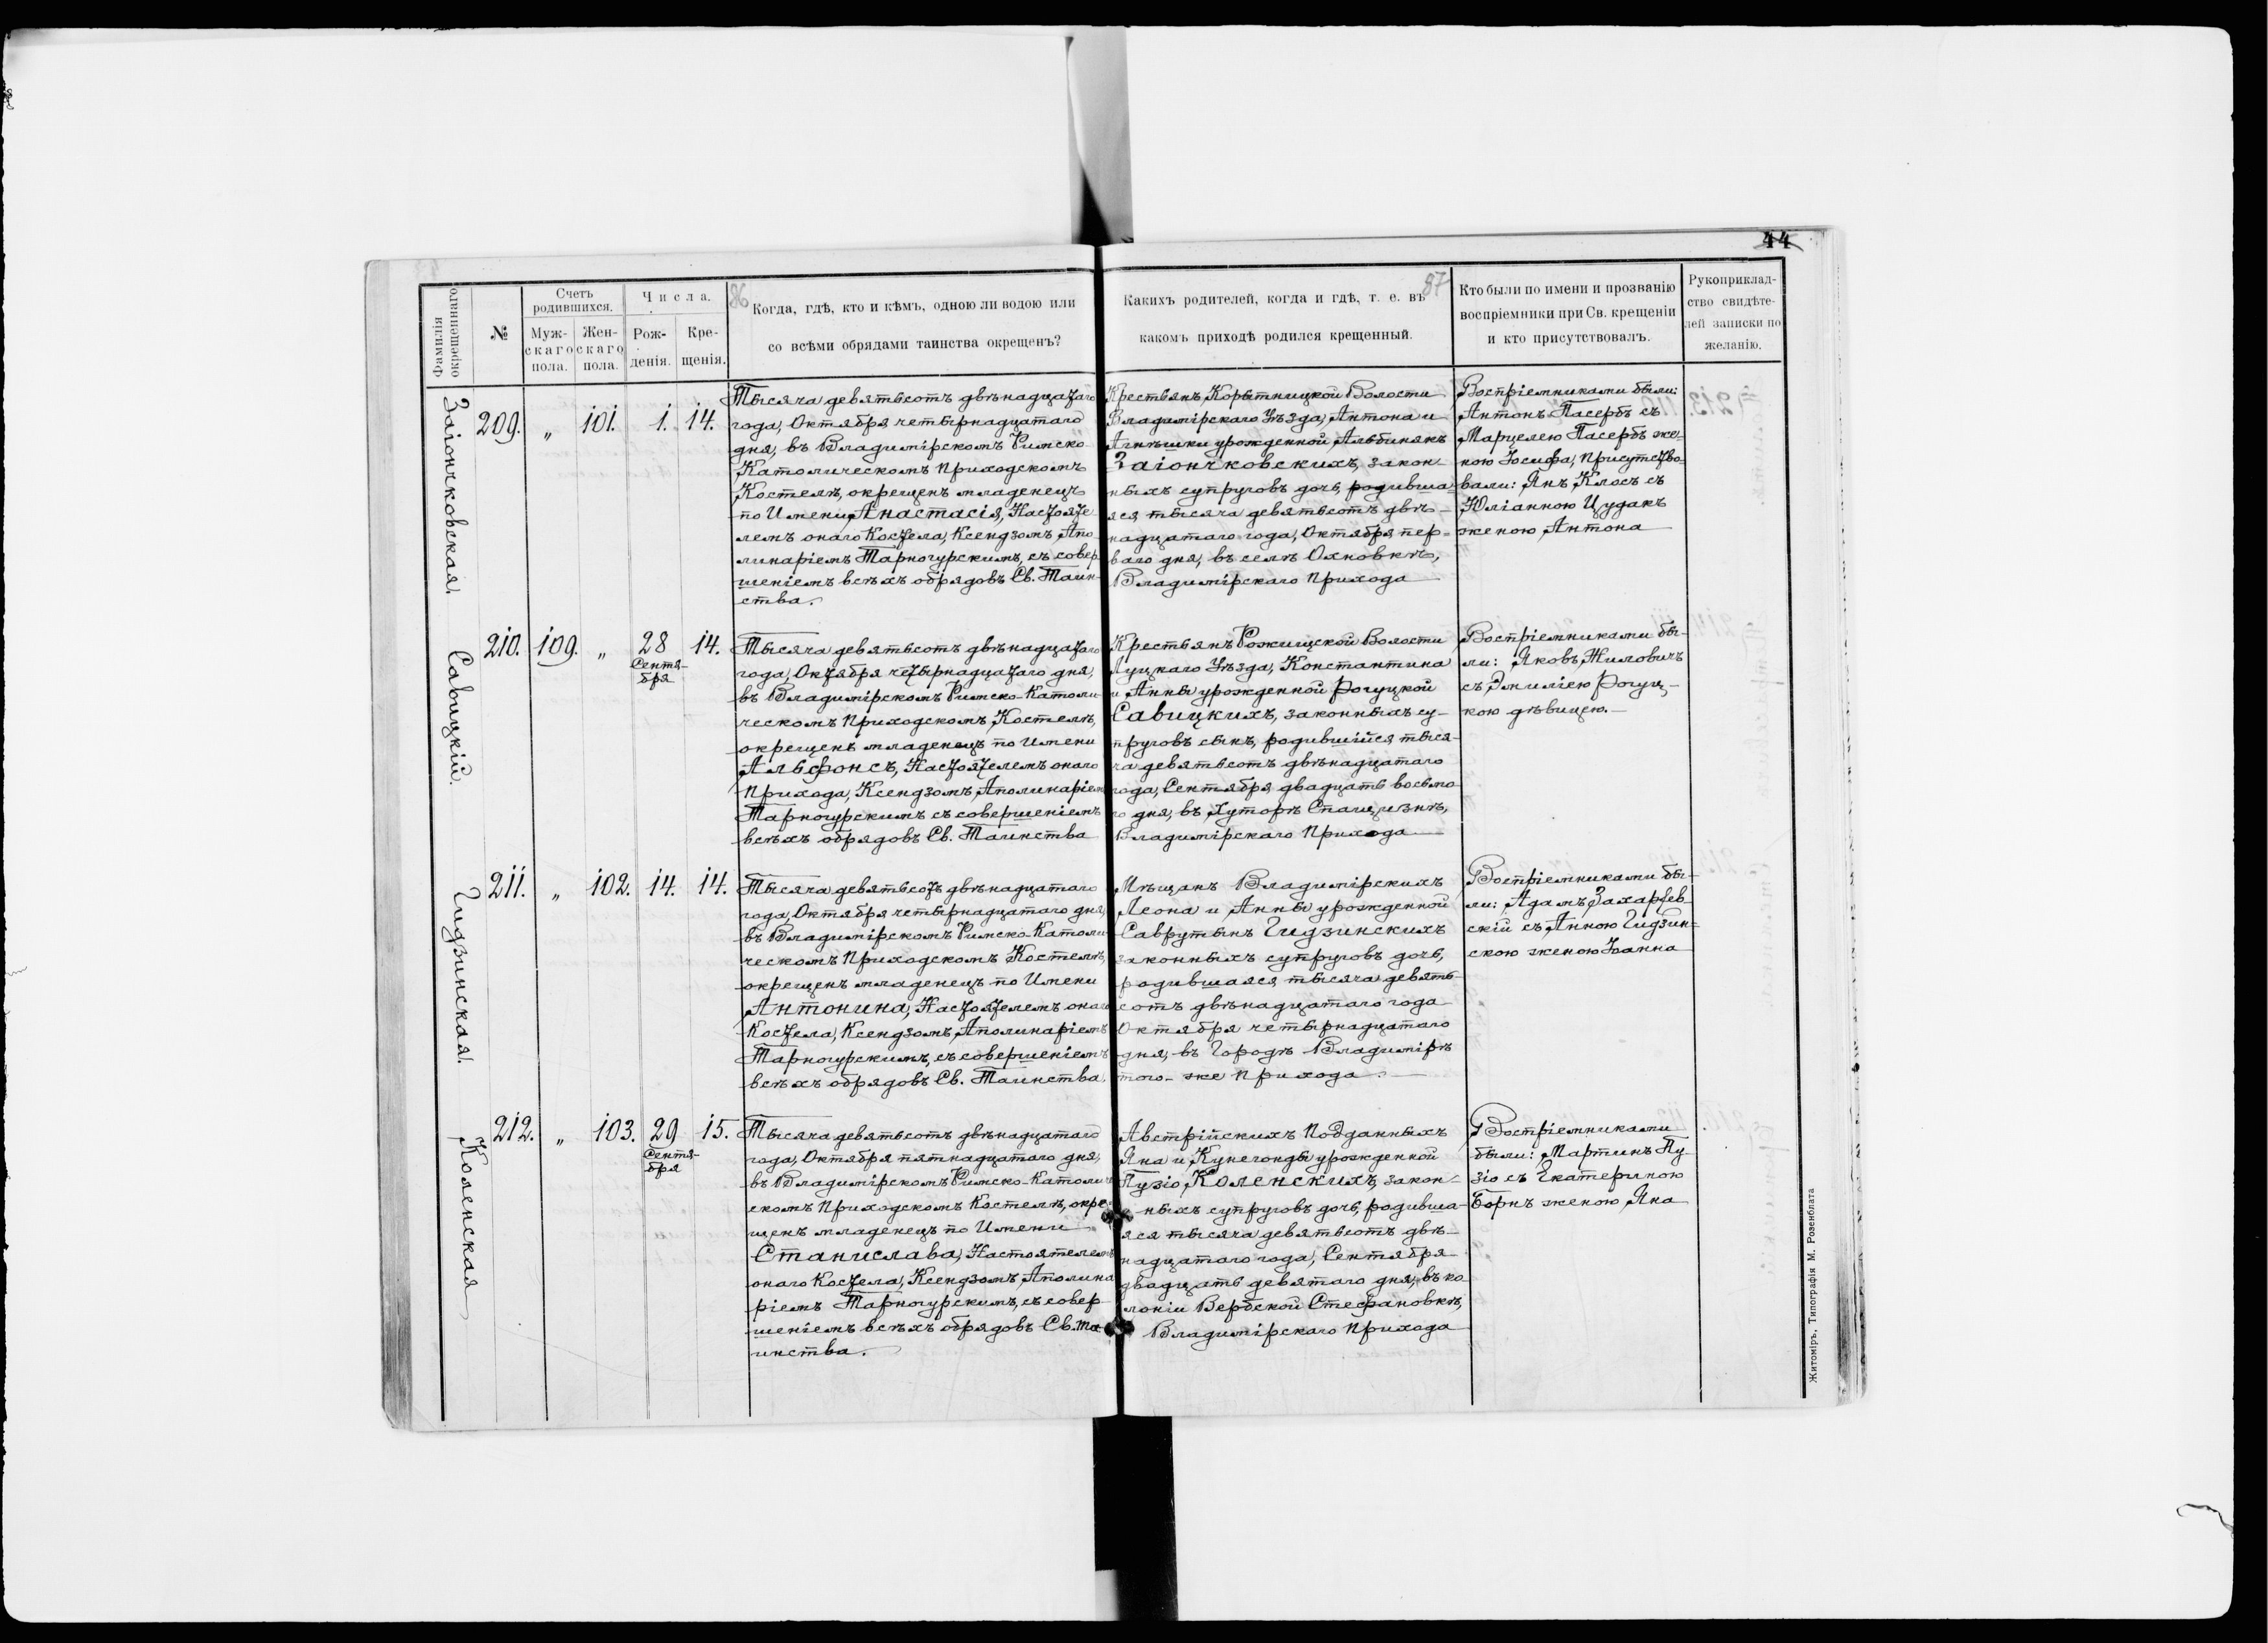 44
86
87
Фамилія окрещеннаго
№
Счетъ родившихся.
Муж-
скаго
пола.
Жен-
скаго
пола.
Числа.
Рож-
денія.
Кре-
щенія.
Когда, гдѣ, кто и кѣмъ, одною ли водою или
со всѣми обрядами таинства окрещенъ?
Какихъ родителей, когда и гдѣ, т. е. въ
какомъ приходѣ родился крещенный.
Кто были по имени и прозванію
воспріемники при Св. крещеніи
и кто присутствовалъ.
Рукоприклад-
ство свидѣте-
лей записки по
желанію.
Заіончковская.
209. „ 101. 1. 14.
Тысяча девятьсотъ двѣнадцатаго
года, Октября четырнадцатаго
дня, въ Владимірскомъ Римско
Католическомъ Приходскомъ
Костелѣ, окрещенъ младенецъ
по Имени Анастасія, Настояте-
лемъ онаго Костела, Ксендзомъ, Апо-
линаріемъ Тарногурскимъ, съ совер-
шеніемъ всѣхъ обрядовъ Св. Таин-
ства.
Крестьянъ, Корытницкой Волости
Владимірскаго Уѣзда, Антона и
Агнѣшки урожденной Альбинякъ
Заіончковскихъ, закон-
ныхъ супруговъ дочь, родивша-
яся тысяча девятьсотъ двѣ-
надцатаго года, Октября пер-
ваго дня, въ селѣ Охновкѣ,
Владимірскаго Прихода
Воспріемниками были:
Антонъ Пасербъ съ
Марцелею Пасербъ же-
ною Іосифа, Присутство-
вали: Янъ Клосъ съ
Юліанною Цудакъ
женою Антона
Савицкій.
210. 109. „ 28 Сентя-
бря 14.
Тысяча девятьсотъ двѣнадцатаго
года, Октября четырнадцатаго дня,
въ Владимірскомъ Римско-Католи-
ческомъ Приходскомъ Костелѣ,
окрещенъ младенецъ по Имени
Альфонсъ, Настоятелемъ онаго
Прихода, Ксендзомъ, Аполинаріемъ
Тарногурскимъ съ совершеніемъ
всѣхъ обрядовъ Св. Таинства
Крестьянъ Рожищской Волости
Луцкаго Уѣзда, Константина
и Анны урожденной Рогуцкой
Савицкихъ, законныхъ су-
пруговъ сынъ, родившійся тыся-
ча девятьсотъ двѣнадцатаго
года, Сентября двадцать восьмо-
го дня, въ Хуторѣ Спащизнѣ,
Владимірскаго Прихода
Воспріемниками бы-
ли: Яковъ Жиловичъ
съ Эмиліею Рогуц-
кою дѣвицею.
Гидзинская.
211. „ 102. 14. 14.
Тысяча девятьсотъ двѣнадцатаго
года, Октября четырнадцатаго дня,
въ Владимірскомъ Римско-Католи-
ческомъ Приходскомъ Костелѣ,
окрещенъ младенецъ по Имени
Антонина, Настоятелемъ онаго
Костела, Ксендзомъ, Аполинаріемъ
Тарногурскимъ, съ совершеніемъ
всѣхъ обрядовъ Св. Таинства.
Мѣщанъ Владимірскихъ
Леона и Анны урожденной
Саврутынъ Гидзинскихъ
законныхъ супруговъ дочь,
родившаяся тысяча девять-
сотъ двѣнадцатаго года
Октября четырнадцатаго
дня, въ Городѣ Владимірѣ
того-же Прихода
Воспріемниками бы-
ли: Адамъ Захарчев-
скій съ Анною Гидзин-
скою женою Іоанна
Коленская
212. „ 103. 29 Сентя-
бря 15.
Тысяча девятьсотъ двѣнадцатаго
года, Октября пятнадцатаго дня,
въ Владимірскомъ Римско-Католиче-
скомъ Приходскомъ Костелѣ, окре-
щенъ младенецъ по Имени
Станислава, Настоятелемъ
онаго Костела, Ксендзомъ, Аполина-
ріемъ Тарногурскимъ, съ совер-
шеніемъ всѣхъ обрядовъ Св. Та-
инства.
Австрійскихъ Подданныхъ
Яна и Кунегонды урожденной
Пузіо, Коленскихъ, закон-
ныхъ супруговъ дочь, родивша-
яся тысяча девятьсотъ двѣ-
надцатаго года, Сентября
двадцать девятаго дня, въ ко-
лоніи Вербской Стефановкѣ,
Владимірскаго Прихода
Воспріемниками
были: Мартинъ Пу-
зіо съ Екатериною
Борнъ женою Яна
Житоміръ, Типографія М. Розенблата